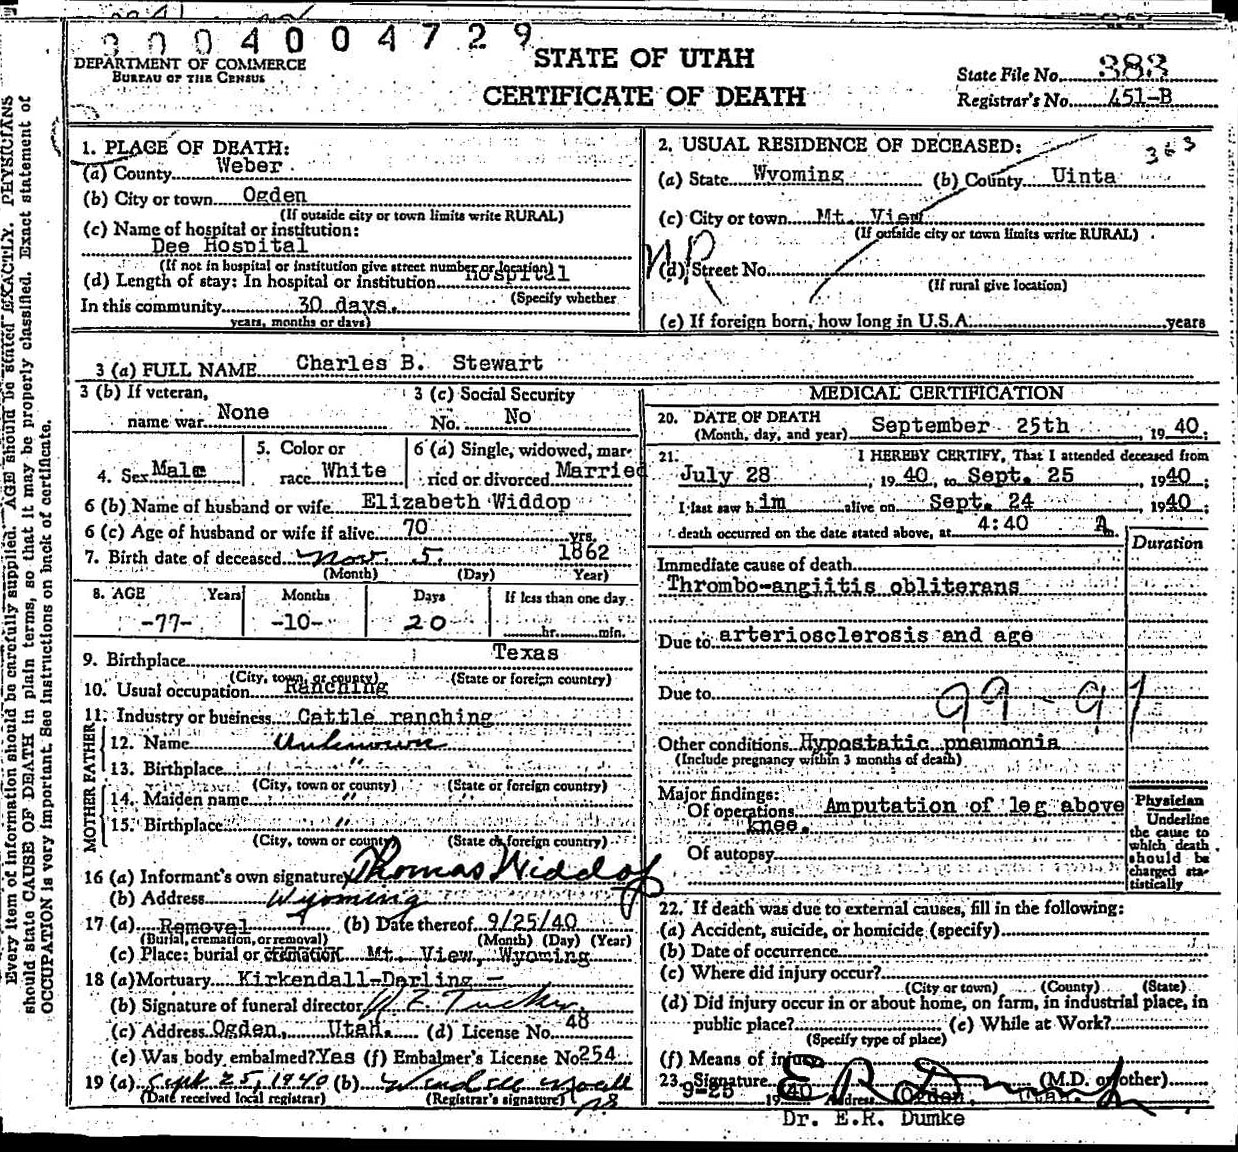 0004004729
DEPARTMENT OF COMMERCE
BUREAU OF THE CENSUS
STATE OF UTAH
CERTIFICATE OF DEATH
State File No. 383
Registrar's No. 451-B
Every item of information should be carefully supplied. AGE should be stated EXACTLY. PHYSICIANS
should state CAUSE OF DEATH in plain terms, so that it may be properly classified. Exact statement of
OCCUPATION is very important. See instructions on back of certificate.
1. PLACE OF DEATH:
(a) County Weber
(b) City or town Ogden
(If outside city or town limits write RURAL)
(c) Name of hospital or institution:
Dee Hospital
(If not in hospital or institution give street number or location)
(d) Length of stay: In hospital or institution hospital
(Specify whether
In this community 30 days.
years, months or days)
2. USUAL RESIDENCE OF DECEASED:
363
(a) State Wyoming (b) County Uinta
(c) City or town Mt. View
(If outside city or town limits write RURAL)
NR
(d) Street No.
(If rural give location)
(e) If foreign born, how long in U.S.A. years
3 (a) FULL NAME Charles B. Stewart
3 (b) If veteran, name war None
3 (c) Social Security No. No
4. Sex Male
5. Color or race White
6 (a) Single, widowed, married or divorced Married
6 (b) Name of husband or wife Elizabeth Widdop
6 (c) Age of husband or wife if alive 70 yrs.
7. Birth date of deceased Nov. 5. 1862
(Month) (Day) Year)
8. AGE Years Months Days If less than one day
-77- -10- 20 hr. min.
9. Birthplace Texas
(City, town, or county) (State or foreign country)
10. Usual occupation Ranching
11. Industry or business Cattle ranching
FATHER
12. Name Unknown
13. Birthplace "
(City, town or county) (State or foreign country)
MOTHER
14. Maiden name "
15. Birthplace "
(City, town or county) (State or foreign country)
16 (a) Informant's own signature Thomas Widdop
(b) Address Wyoming
17 (a) Removal (b) Date thereof 9/25/40
(Burial, cremation, or removal) (Month) (Day) (Year)
(c) Place: burial or cremation Mt. View, Wyoming
18 (a) Mortuary Kirkendall-Darling -
(b) Signature of funeral director W E Tucker
(c) Address Ogden, Utah. (d) License No. 48
(e) Was body embalmed? Yes (f) Embalmer's License No 254
19 (a) Sept 25, 1940 (b)
(Date received local registrar) (Registrar's signature)
MEDICAL CERTIFICATION
20. DATE OF DEATH
(Month, day, and year) September 25th, 1940;
21. I HEREBY CERTIFY, That I attended deceased from
July 28, 1940, to Sept. 25, 1940;
I last saw him alive on Sept. 24, 1940;
death occurred on the date stated above, at 4:40 A m.
Duration
Immediate cause of death
Thrombo-angiitis obliterans
Due to arteriosclerosis and age
Due to
99-97
Other conditions Hypostatic pneumonia
(Include pregnancy within 3 months of death)
Major findings:
Of operations Amputation of leg above
knee.
Of autopsy
Physician
Underline
the cause to
which death
should be
charged sta-
tistically
22. If death was due to external causes, fill in the following:
(a) Accident, suicide, or homicide (specify)
(b) Date of occurrence
(c) Where did injury occur?
(City or town) (County) (State)
(d) Did injury occur in or about home, on farm, in industrial place, in
public place? (e) While at Work?
(Specify type of place)
(f) Means of injury
23. Signature E R Dumke (M.D. or other)
9-25 1940 Address Ogden, Utah.
Dr. E.R. Dumke